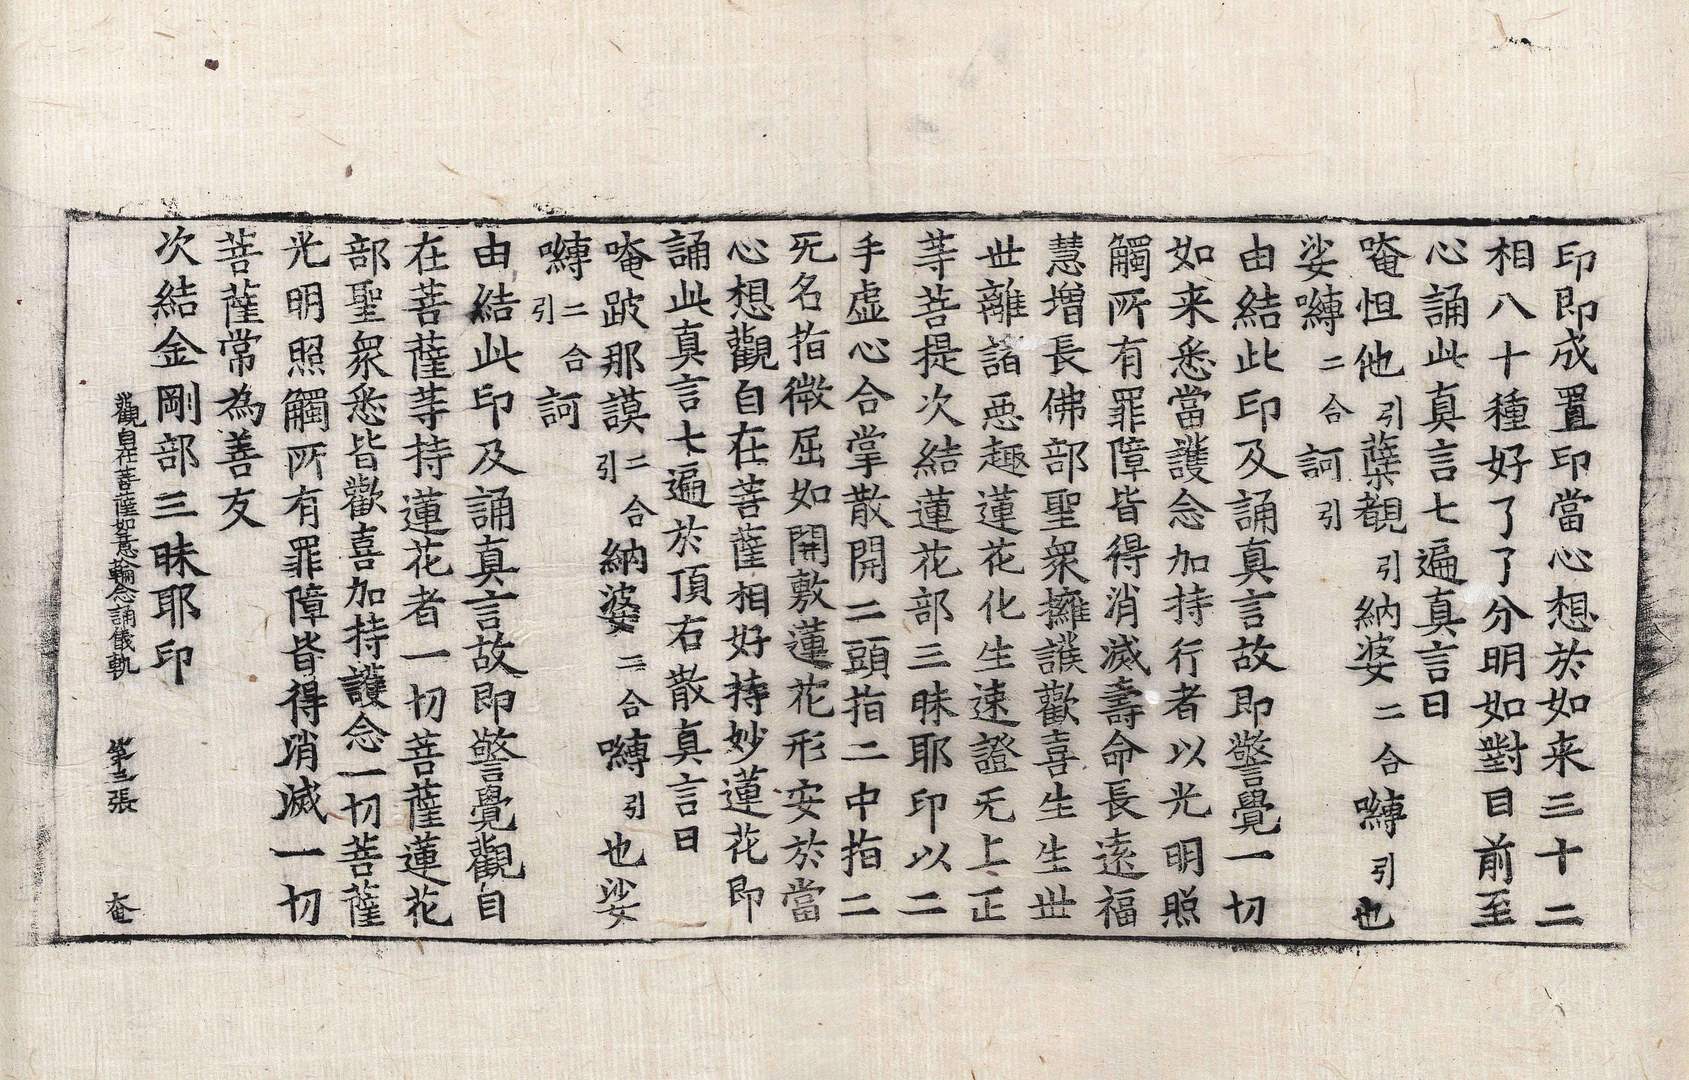 印即成置印當心想於如来三十二
相八十種好了了分明如對目前至
心誦此真言七遍真言曰
唵怛他引蘖覩引納婆二合嚩引也
娑嚩二合訶引
由結此印及誦真言故即警覺一切
如来悉當護念加持行者以光明照
觸所有罪障皆得消滅壽命長遠福
慧增長佛部聖衆擁護歡喜生生世
世離諸惡趣蓮花化生速證无上正
等菩提次結蓮花部三昧耶印以二
手虛心合掌散開二頭指二中指二
无名指微屈如開敷蓮花形安於當
心想觀自在菩薩相好持妙蓮花即
誦此真言七遍於頂右散真言曰
唵跛那謨二合引納婆二合嚩引也娑
嚩二合引訶
由結此印及誦真言故即警覺觀自
在菩薩等持蓮花者一切菩薩蓮花
部聖衆悉皆歡喜加持護念一切菩薩
光明照觸所有罪障皆得消滅一切
菩薩常為善友
次結金剛部三昧耶印
觀自在菩薩如意輪念誦儀軌 第三張 奄